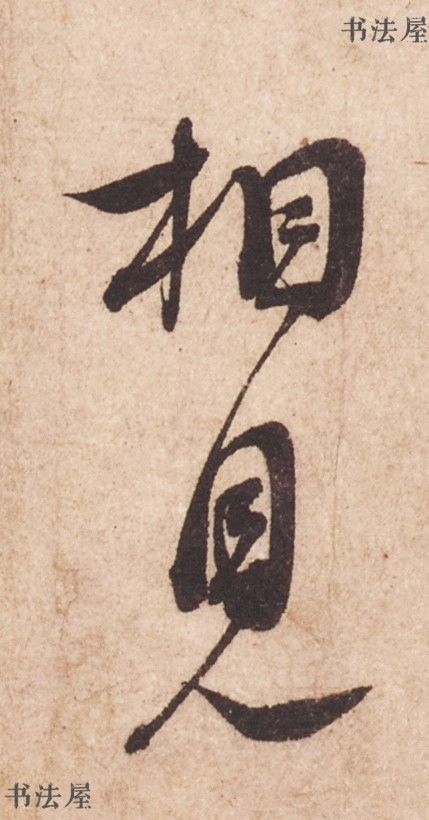 书法屋
相見
书法屋